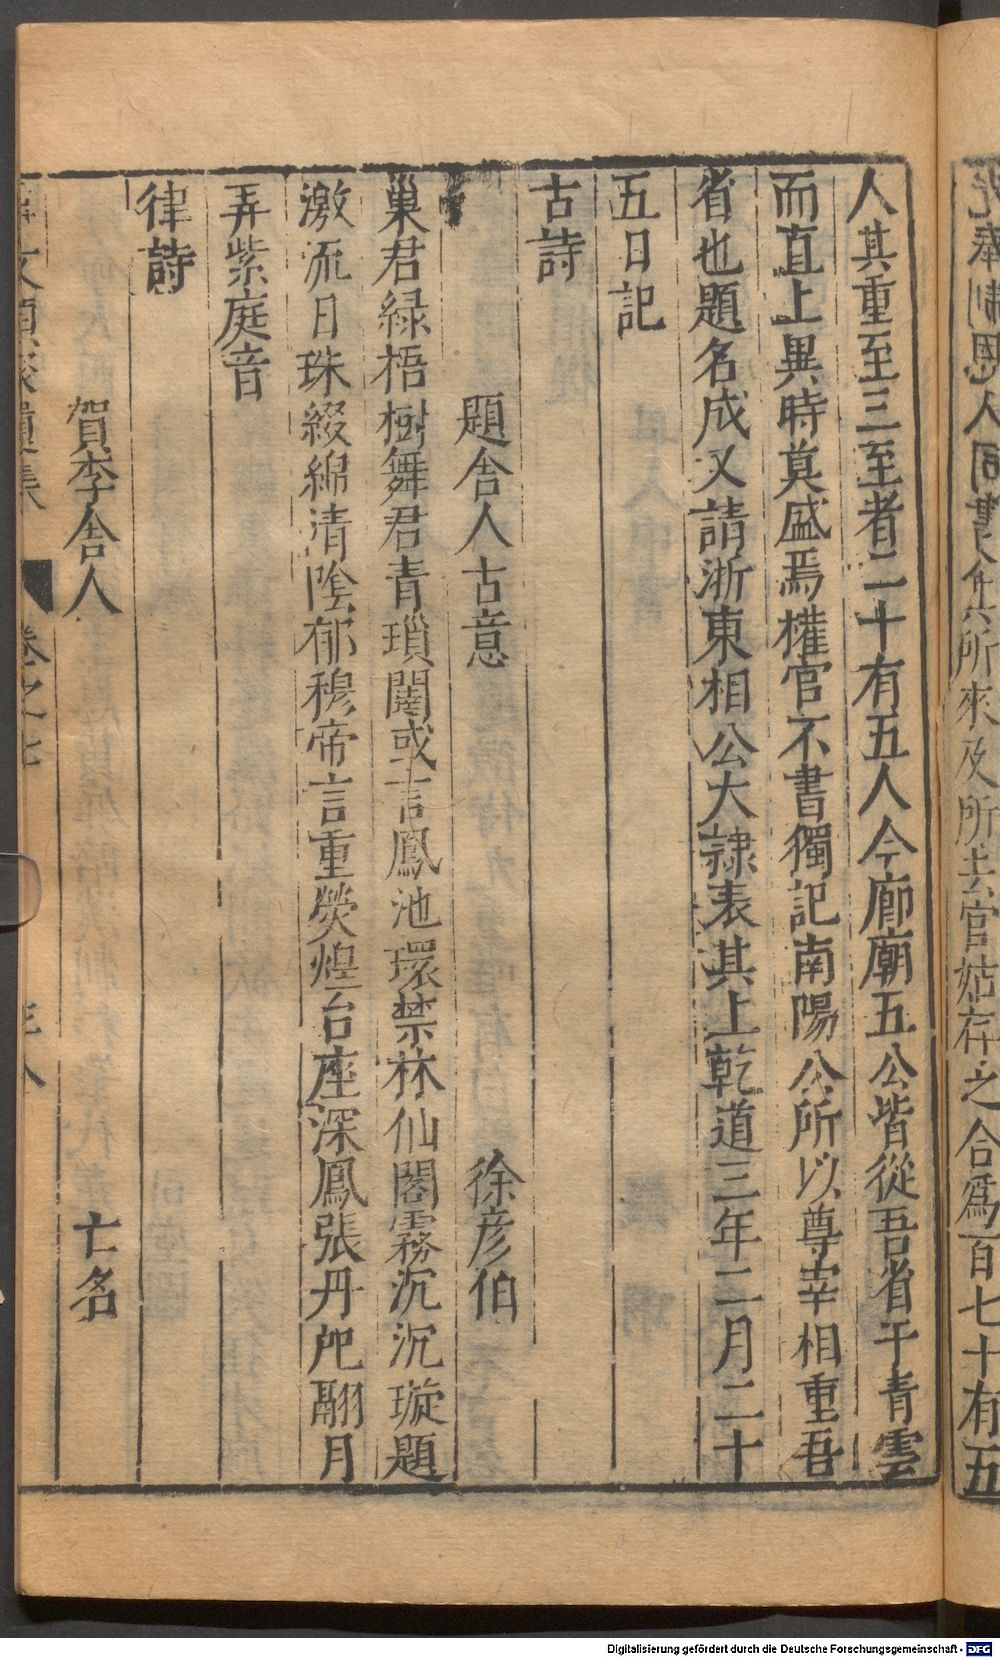 恩人同書今六所來及所去官姑存之合爲百七十有五
人其重至三至者二十有五人今廊廟五公皆從吾省于青雲
而直上異時莫盛焉權官不書獨記南陽公所以尊宰相重吾
省也題名成又請浙東相公大隷表其上乾道三年二月二十
五日記
古詩
題舍人古意 徐彦伯
巢君緑梧樹舞君青瑣闈或言鳳池環禁林仙閣霧沉沉璇題
激流日珠綴綿清陰郁穆帝言重熒煌台座深鳳張丹戺翮月
弄紫庭音
律詩
賀李舍人 亡名
卷之七
Digitalisierung gefördert durch die Deutsche Forschungsgemeinschaft - DFG